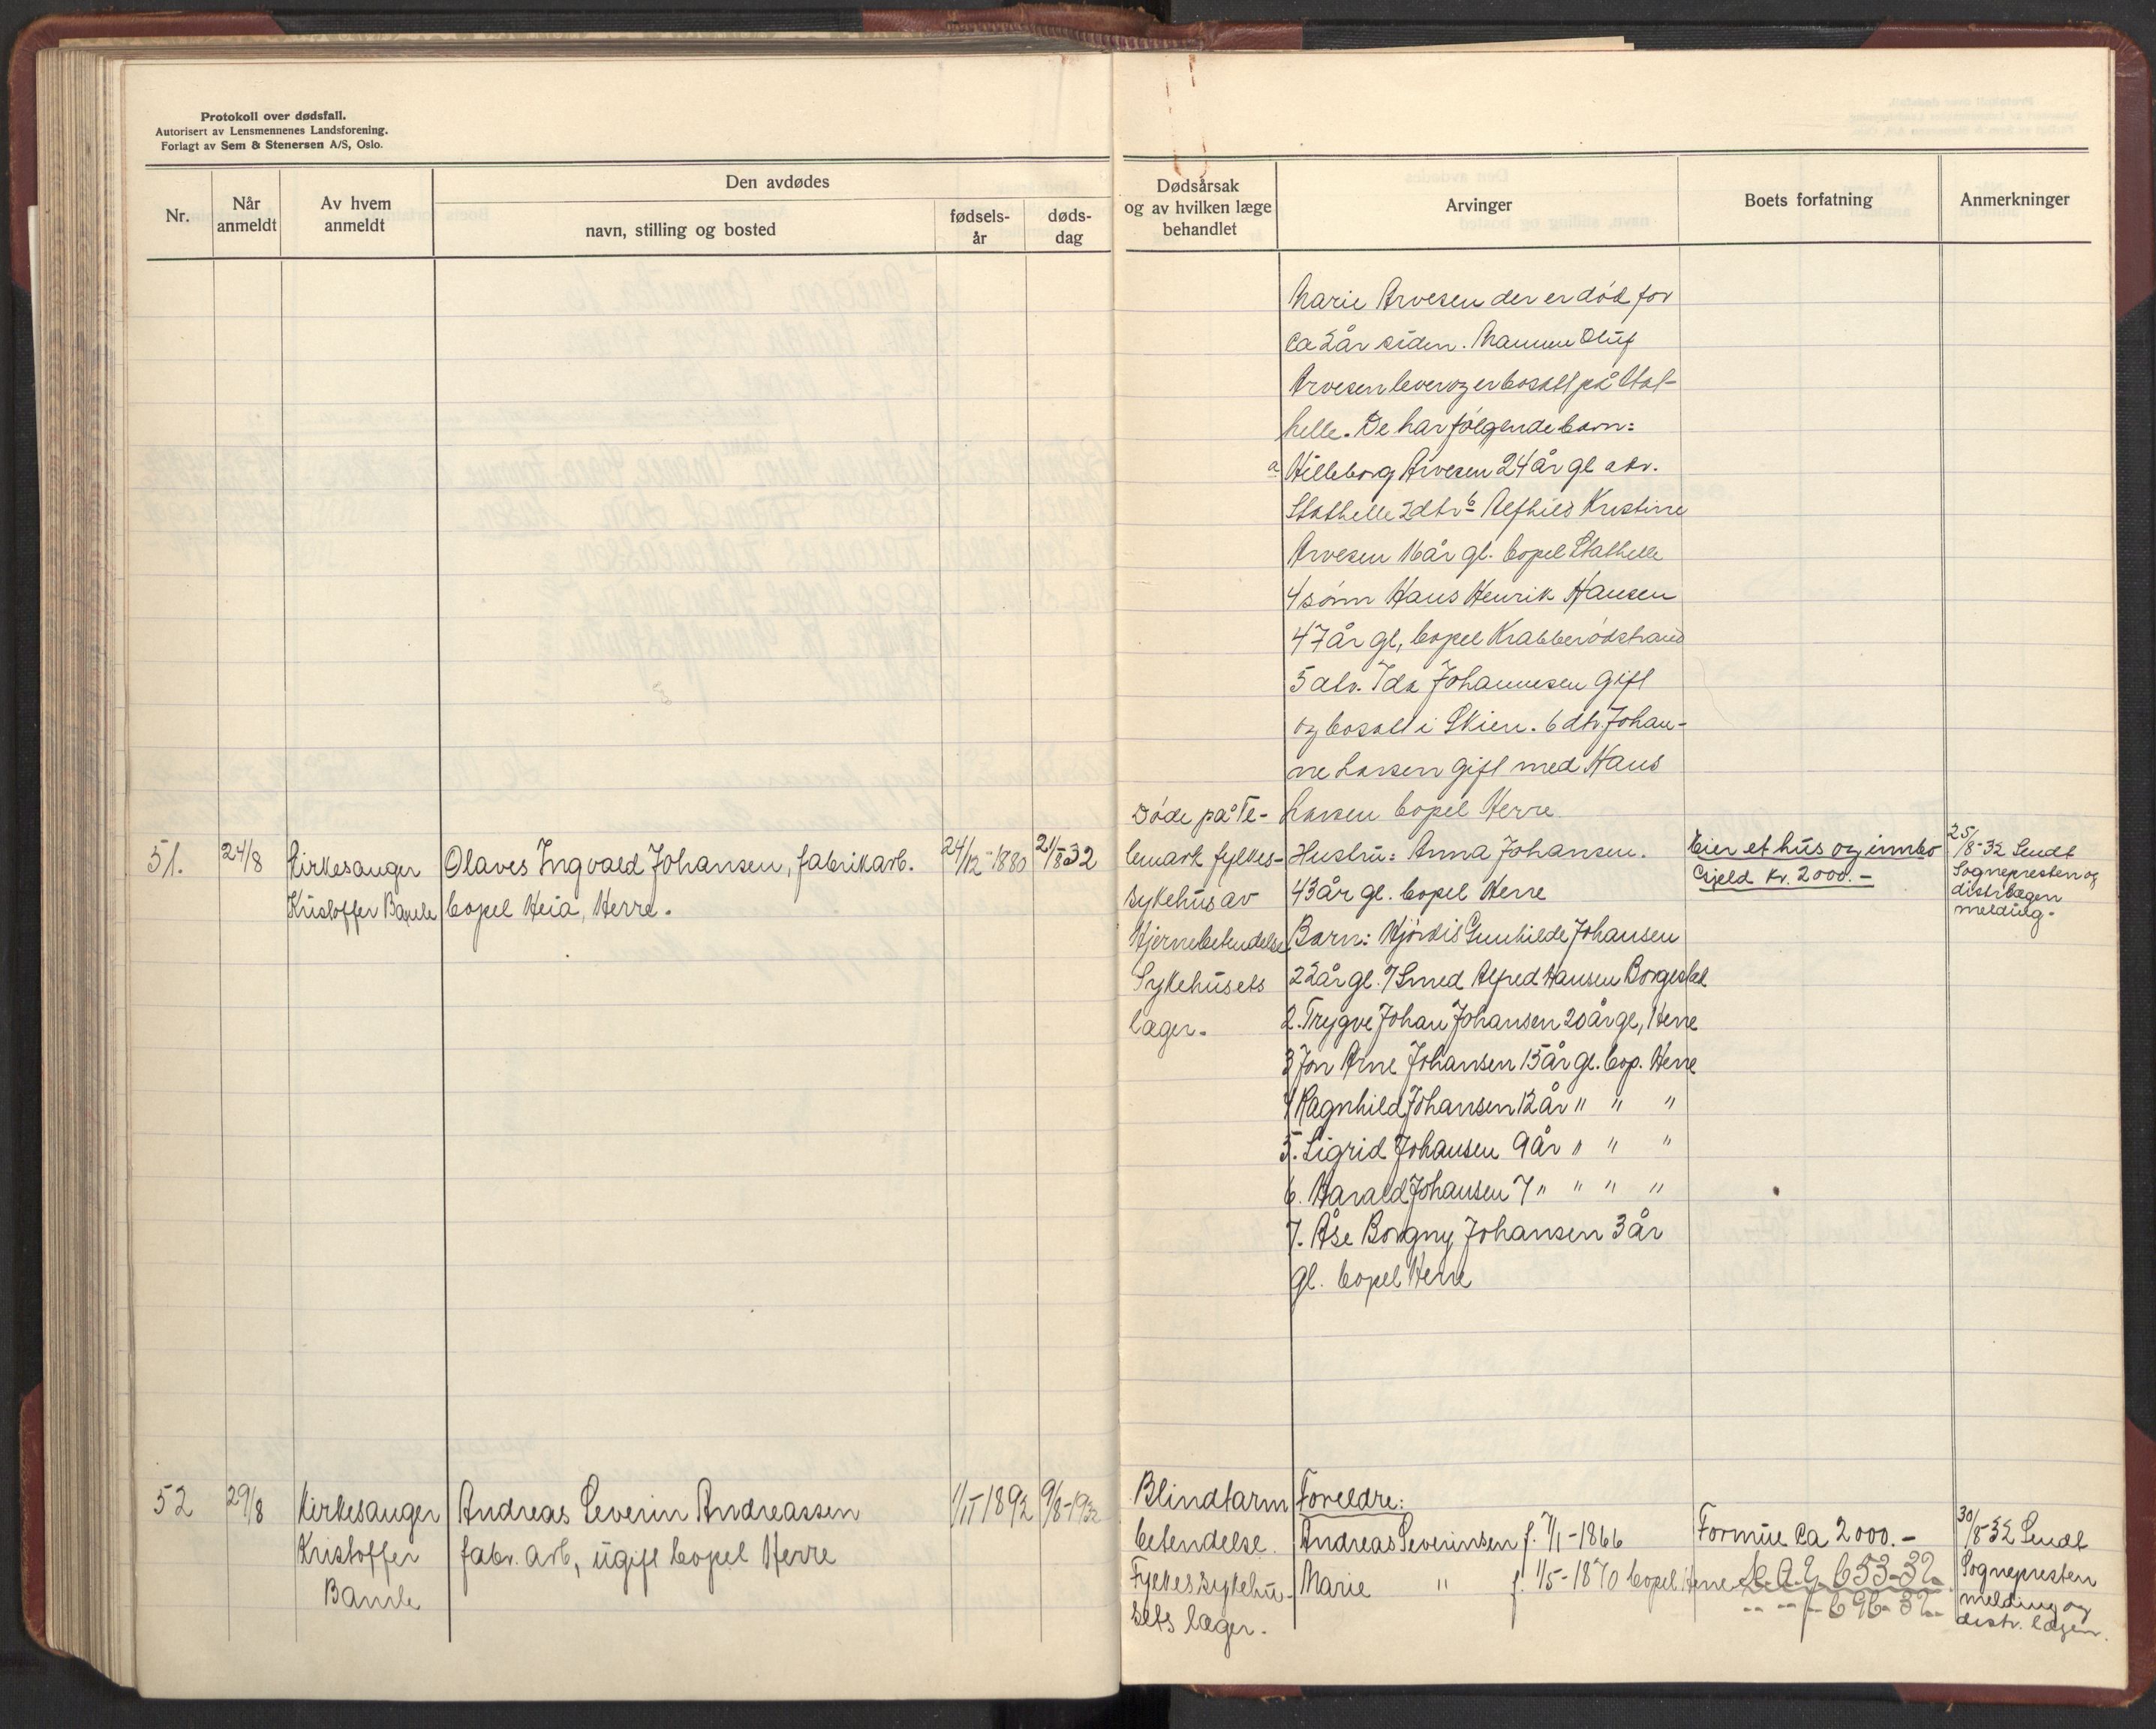 Protokoll over dødsfall.
Autorisert av Lensmennenes Landsforening.
Forlagt av Sem & Stenersen A/S, Oslo.
Nr.
Når
anmeldt
Av hvem
anmeldt
Den avdødes
navn, stilling og bosted
fødsels-
år
døds-
dag
Dødsårsak
og av hvilken læge
behandlet
Arvinger
Boets forfatning
Anmerkninger
Marie Arvesen der er død for
ca 2 år siden. Mannen Oluf
Arvesen lever og er bosatt på Stat-
helle. De har følgende barn:
a Hilleborg Arvesen 24 år gl adr.
Stathelle 2 dtr b Alfhild Kristine
Arvesen 16 år gl. bopel Stathelle
4 sønn Hans Henrik Hansen
47 år gl, bopel Krabberødstrand
5 dtr. Ida Johannesen gift
og bosatt i Skien. 6 dtr Johan-
ne Larsen gift med Hans
Larsen bopel Herre
51.
24/8
Kirkesanger
Kristoffer Bamle
Olaves Ingvald Johansen, fabrikarb.
bopel Heia, Herre.
24/12-1880
21/8-32
Døde på Te-
lemark fylkes-
sykehus av
Hjernebetendelse
Sykehusets
læger.
Hustru: Anna Johansen.
43 år gl. bopel Herre
Barn: Hjørdis Gunhilde Johansen
22 år gl. g/med Alfred Hansen Borgestad
2. Trygve Johan Johansen 20 år gl, Herre
3 Jon Arne Johansen 15 år gl. bop. Herre
4 Ragnhild Johansen 12 år " " "
5. Sigrid Johansen 9 år " " "
6. Harald Johansen 7 " " " "
7. Åse Borgny Johansen 3 år
gl. bopel Herre
Eier et hus og innbo
Gjeld kr. 2000.-
25/8-32 Sendt
Sognepresten og
distr.lægen
melding.
52
29/8
Kirkesanger
Kristoffer
Bamle
Andreas Severin Andreassen
fabr. arb, ugift bopel Herre
1892
9/8-1932
Blindtarm
betendelse.
Fylkessykehu-
sets læger.
Foreldre:
Andreas Severinsen f. 7/1-1866
Marie " f. 1/5-1870 bopel Herre
Formue ca 2000.-
653-32
696-32
30/8-32 Sendt
Sognepresten
melding og
distr. lægen.